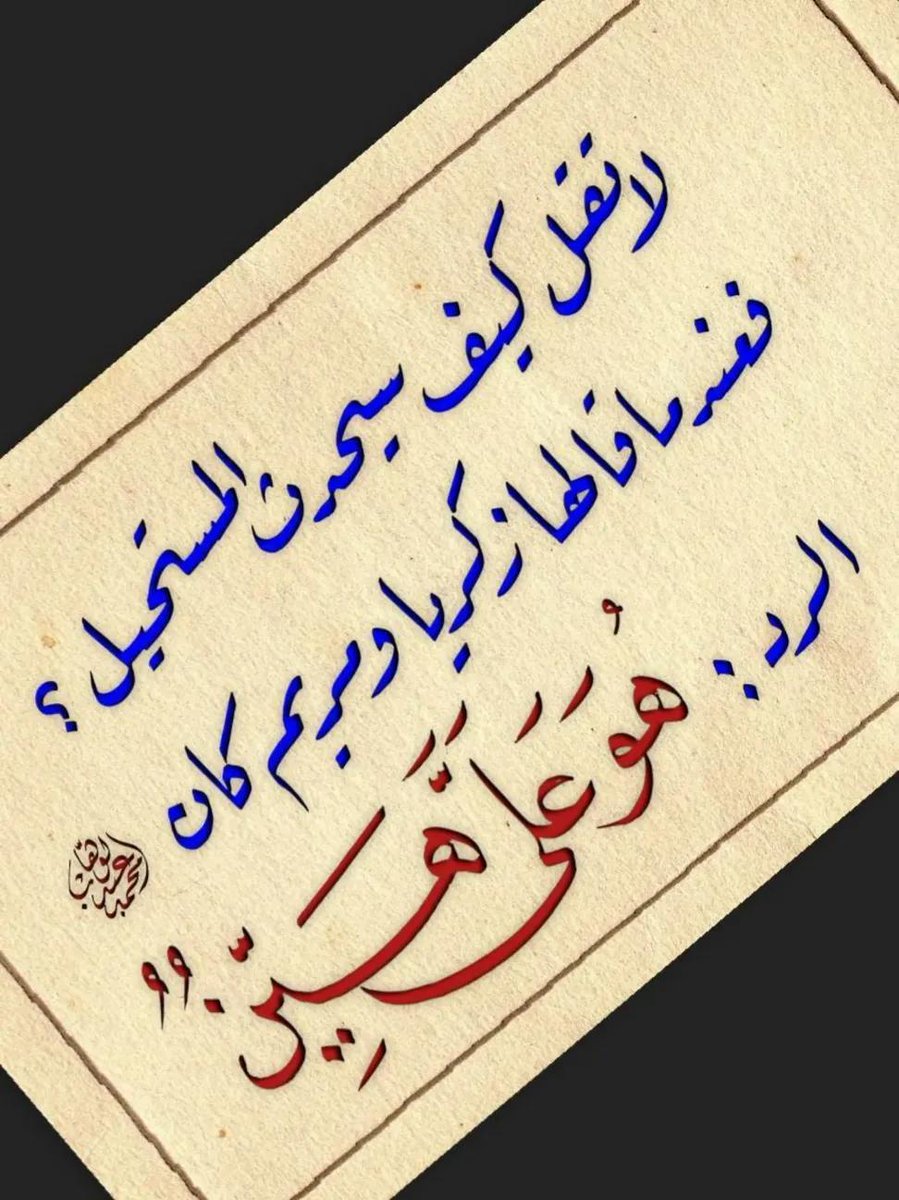 لا تقل كيف سيحدث المستحيل ؟
فعندما قالها زكريا ومريم كان
الرد :
هُوَ عَلَيَّ هَيِّنٌ
محمد عبدالوهاب